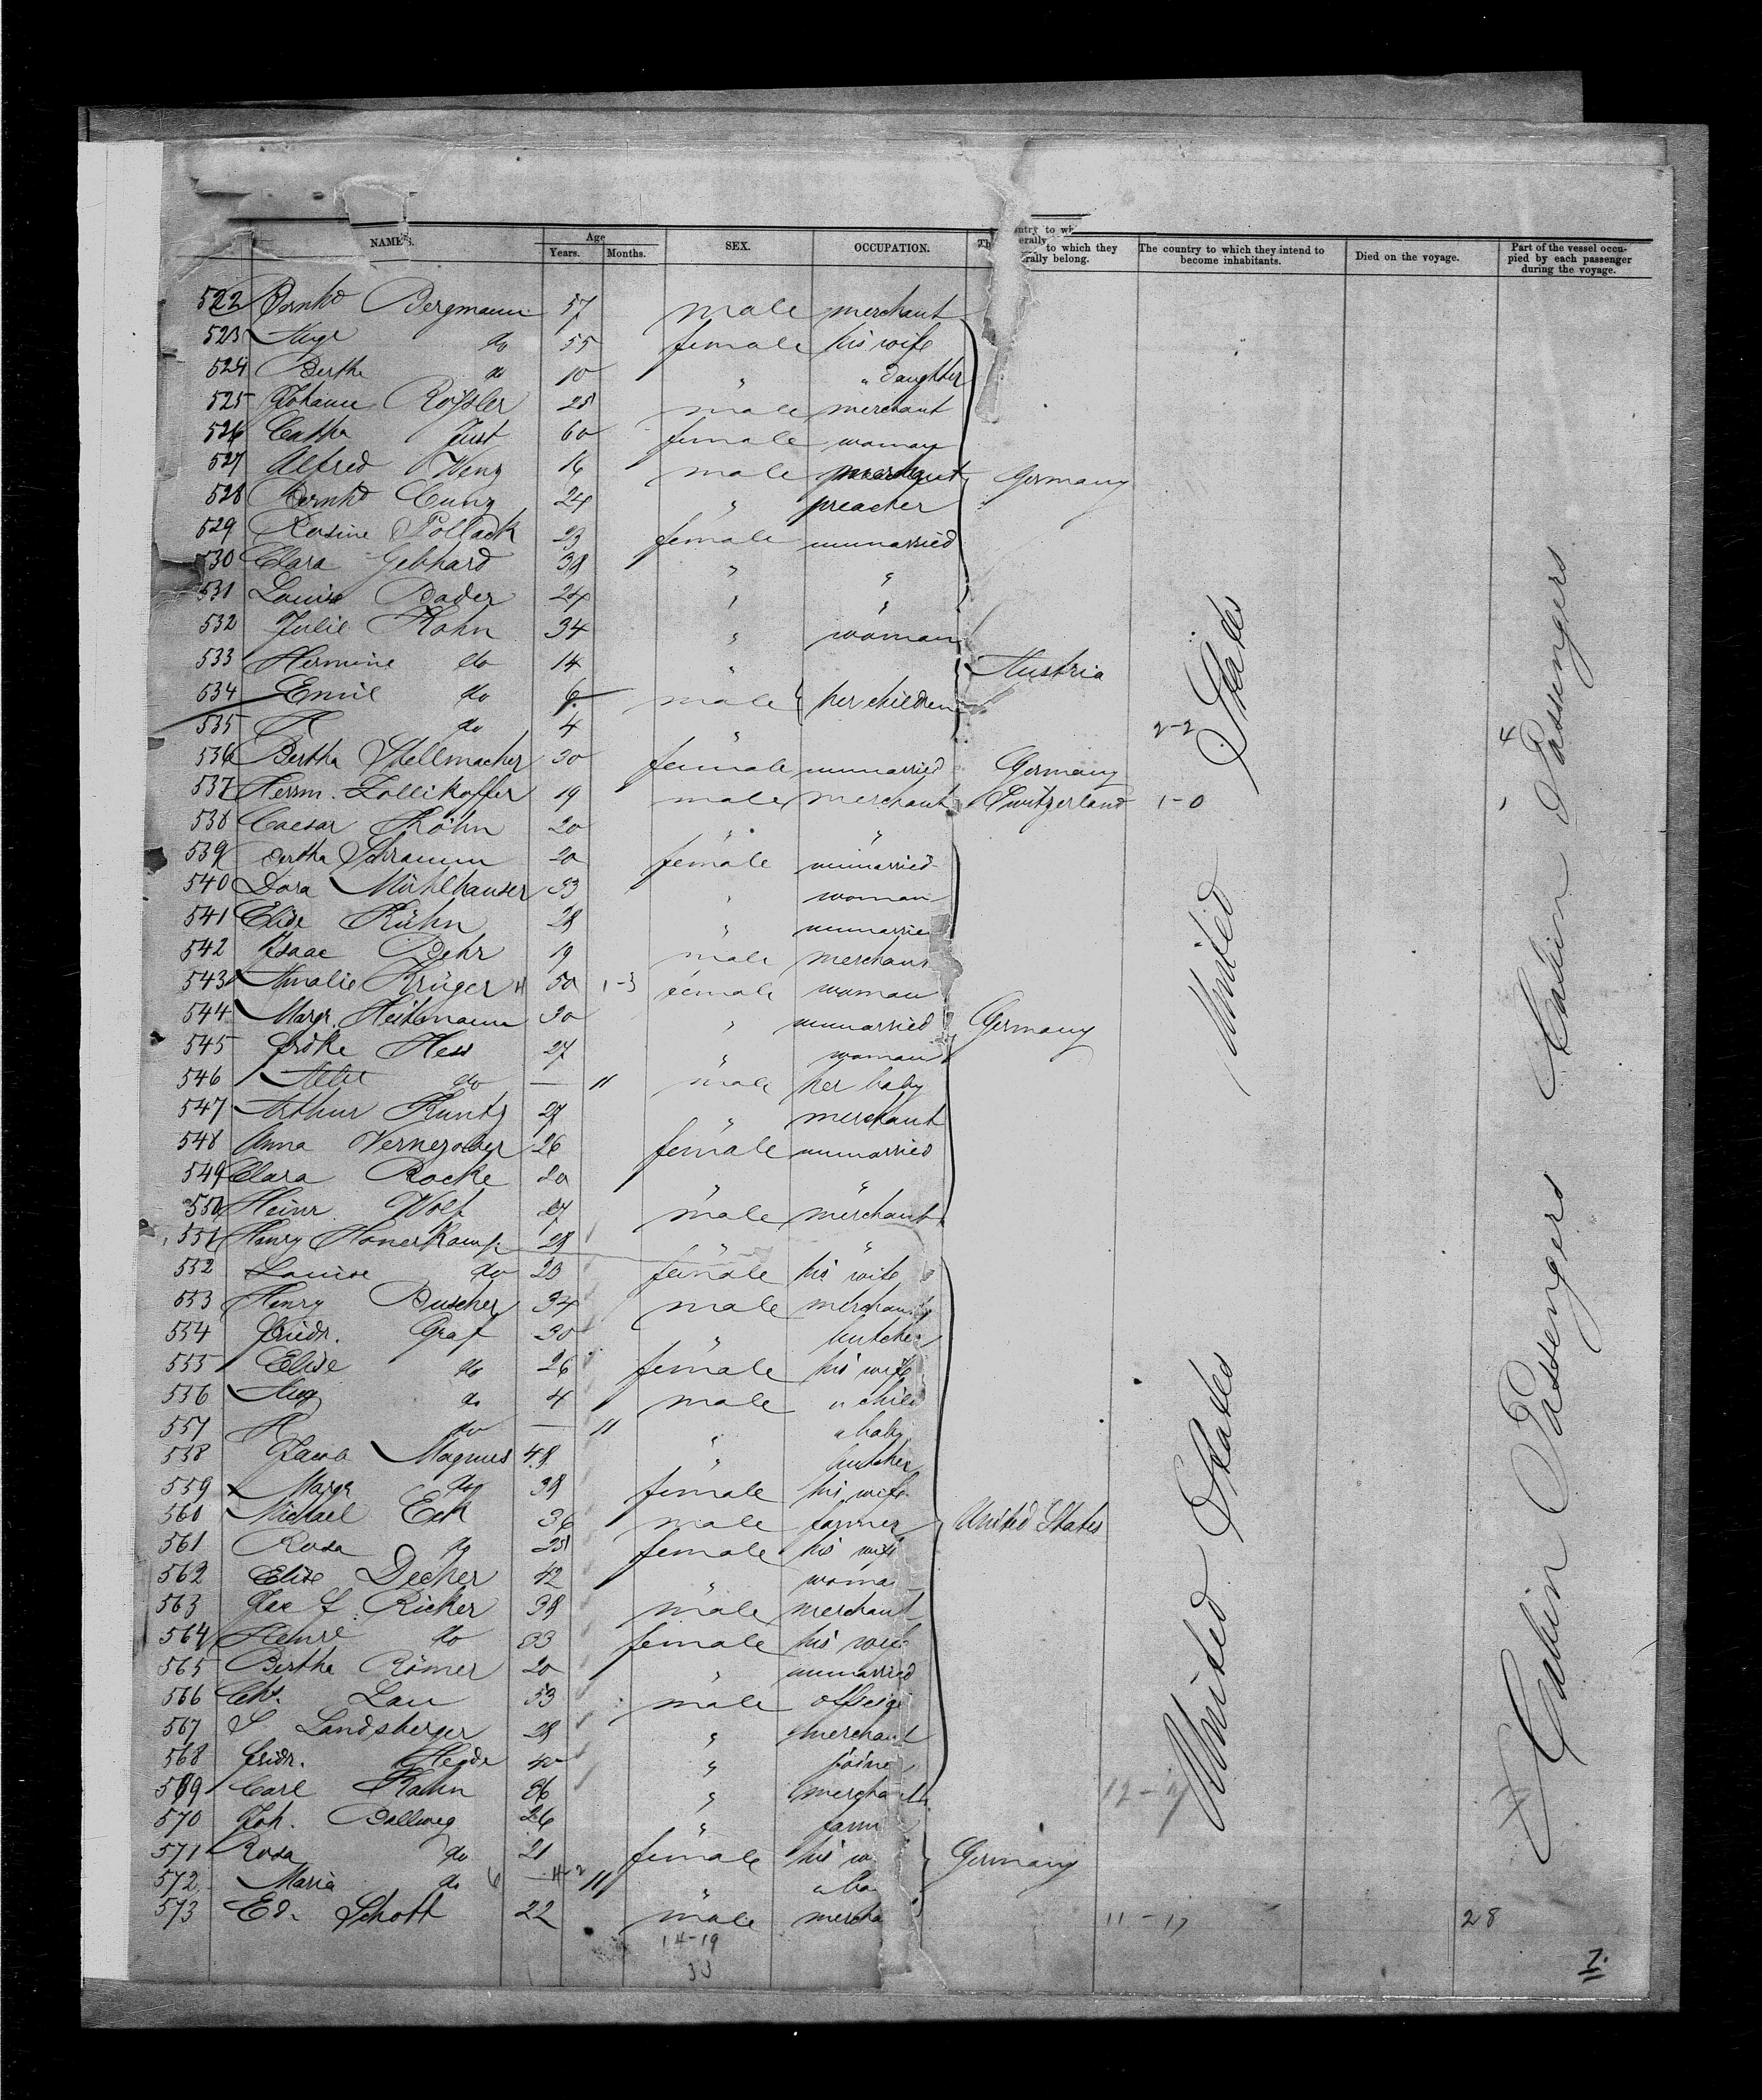 NAMES. Age Years. Months. SEX. OCCUPATION. to which they rally belong. The country to which they intend to become inhabitants. Died on the voyage. Part of the vessel occupied by each passenger during the voyage.
522 Bernhd Bergmann 57 male merchant
523 do 55 female his wife
524 Bertha do 10 " " daughter
525 Johann Roßler 28 male merchant
526 Catha Just 60 female woman
527 Alfred Wenz 16 male merchant Germany
528 Bernhd Cunz 24 " preacher
529 Rosine Pollack 23 female unmarried
530 Clara Gebhard 38 " "
531 Louise Bader 24 " "
532 Julie Kohn 34 " woman
533 Hermine do 14 " Austria
534 Emil do 6 male her children
535 do 4 " 2-2 4
536 Bertha Stellmacher 30 female unmarried Germany
537 Herrm. Zollikoffer 19 male merchant Switzerland 1-0
538 Caesar Köhn 20 " "
539 Bertha Schramm 20 female unmarried
540 Dora Mühlhauser 53 " woman
541 Elise Kühn 28 " unmarrie
542 Isaac Behr 19 male merchant
543 Amalie Krüger 50 1-3 female woman
544 Margr. Heitmann 30 " unmarried Germany
545 Hess 27 " woman
546 do — 11 male her baby
547 Arthur Kuntz 27 " merchant
548 Anna Vernezober 26 female unmarried
549 Clara Rocke 20 " "
550 Heinr. Wolf male merchant
551 Henry Honerkamp 28 " "
552 Louise do 23 female his wife
553 Henry Buscher 34 male merchant
554 Friedr. Graf 30 " butcher
555 Elise do 26 female his wife
556 Aug do 4 male " child
557 H do — 11 " " baby
558 Jacob Magnus 48 " butcher
559 Margr do 38 female his wife
560 Michael Eck 36 male farmer United States
561 Rosa do 25 female his wife
562 Elise Decher 42 " woma
563 Jac L. Ricker 38 male merchant
564 do 33 female his wife
565 Bertha Römer 20 " unmarried
566 Chs. Lau 53 male
567 S Landsberger 28 " merchant
568 Friedr. 40 " joine
569 Carl Kahn 36 " merchant 12-17
570 Joh. Bollweg 26 " farm
571 Rosa do 21 female his w Germany
572 Maria do — 11 " " ba
573 Ed. Schott 22 male mercha 11-17 28
14-19
33
United States
United States
Cabin Passengers
Cabin Passengers
7.